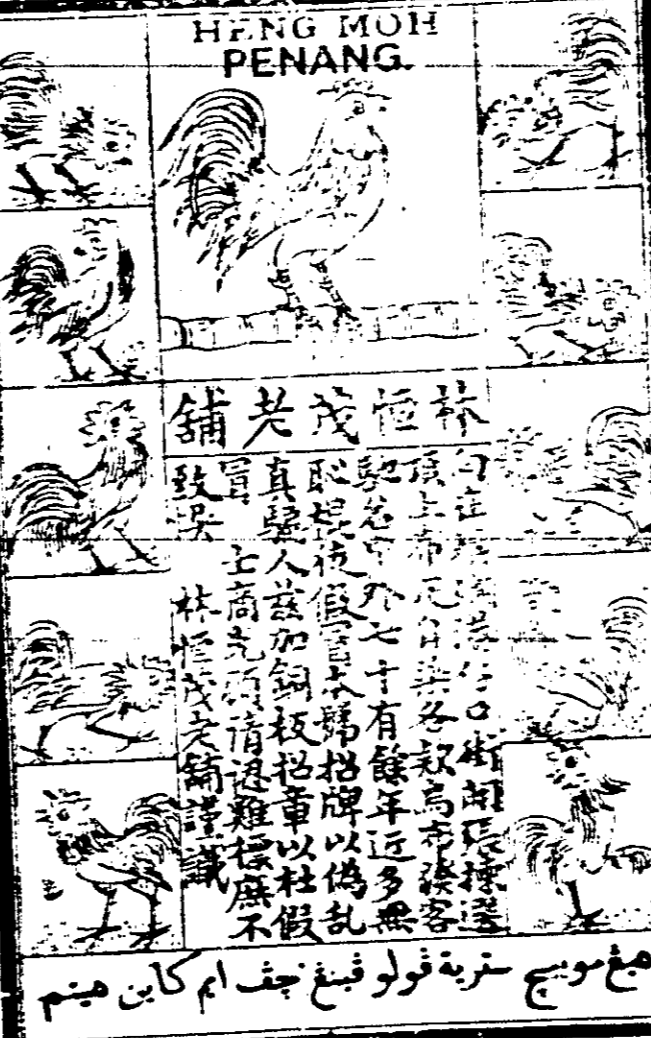 HENG MOH
PENANG.
林恒茂老舖
向在檳城港仔口街開張揀選
頂上布疋自染各款烏布發客
馳名中外七十有餘年近多無
恥棍徒假冒本號招牌以偽乱
真騙人茲加銅板招章以杜假
冒 士商光顧請認雞標庶不
致悞 林恒茂老舖謹識
هيڠ مو بيچ سترية ڤولو ڤينڠ چڤ ايم كاين هيتم